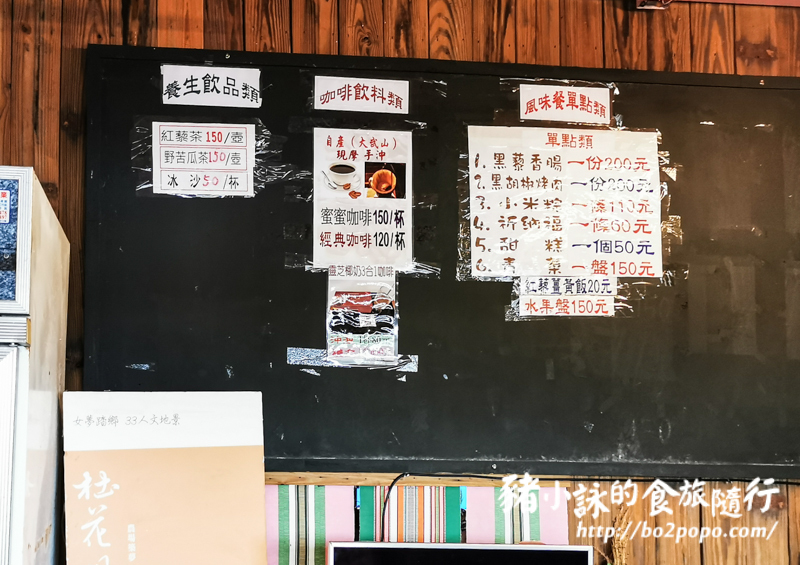 養生飲品類
紅藜茶150/壺
野苦瓜茶150/壺
冰 沙50/杯
咖啡飲料類
自產（大武山）
現摩 手沖
蜜蜜咖啡150/杯
經典咖啡120/杯
靈芝椰奶3合1咖啡
風味餐單點類
單點類
1. 黑藜香腸 一份200元
2. 黑胡椒烤肉 一份250元
3. 小米粽 一條110元
4. 祈納福 一條60元
5. 甜 糕 一個50元
6. 青 菜 一盤150元
紅藜薑黃飯20元
水果盤150元
33人文地景
桂花
豬小詠的食旅隨行
http://bo2popo.com/